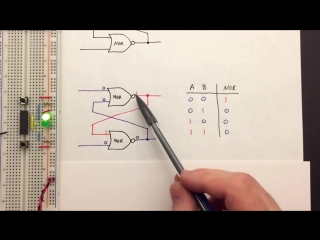 NOR
0
NOR
0
1
1
NOR
0
0
A B NOR
0 0 1
0 1 0
1 0 0
1 1 0